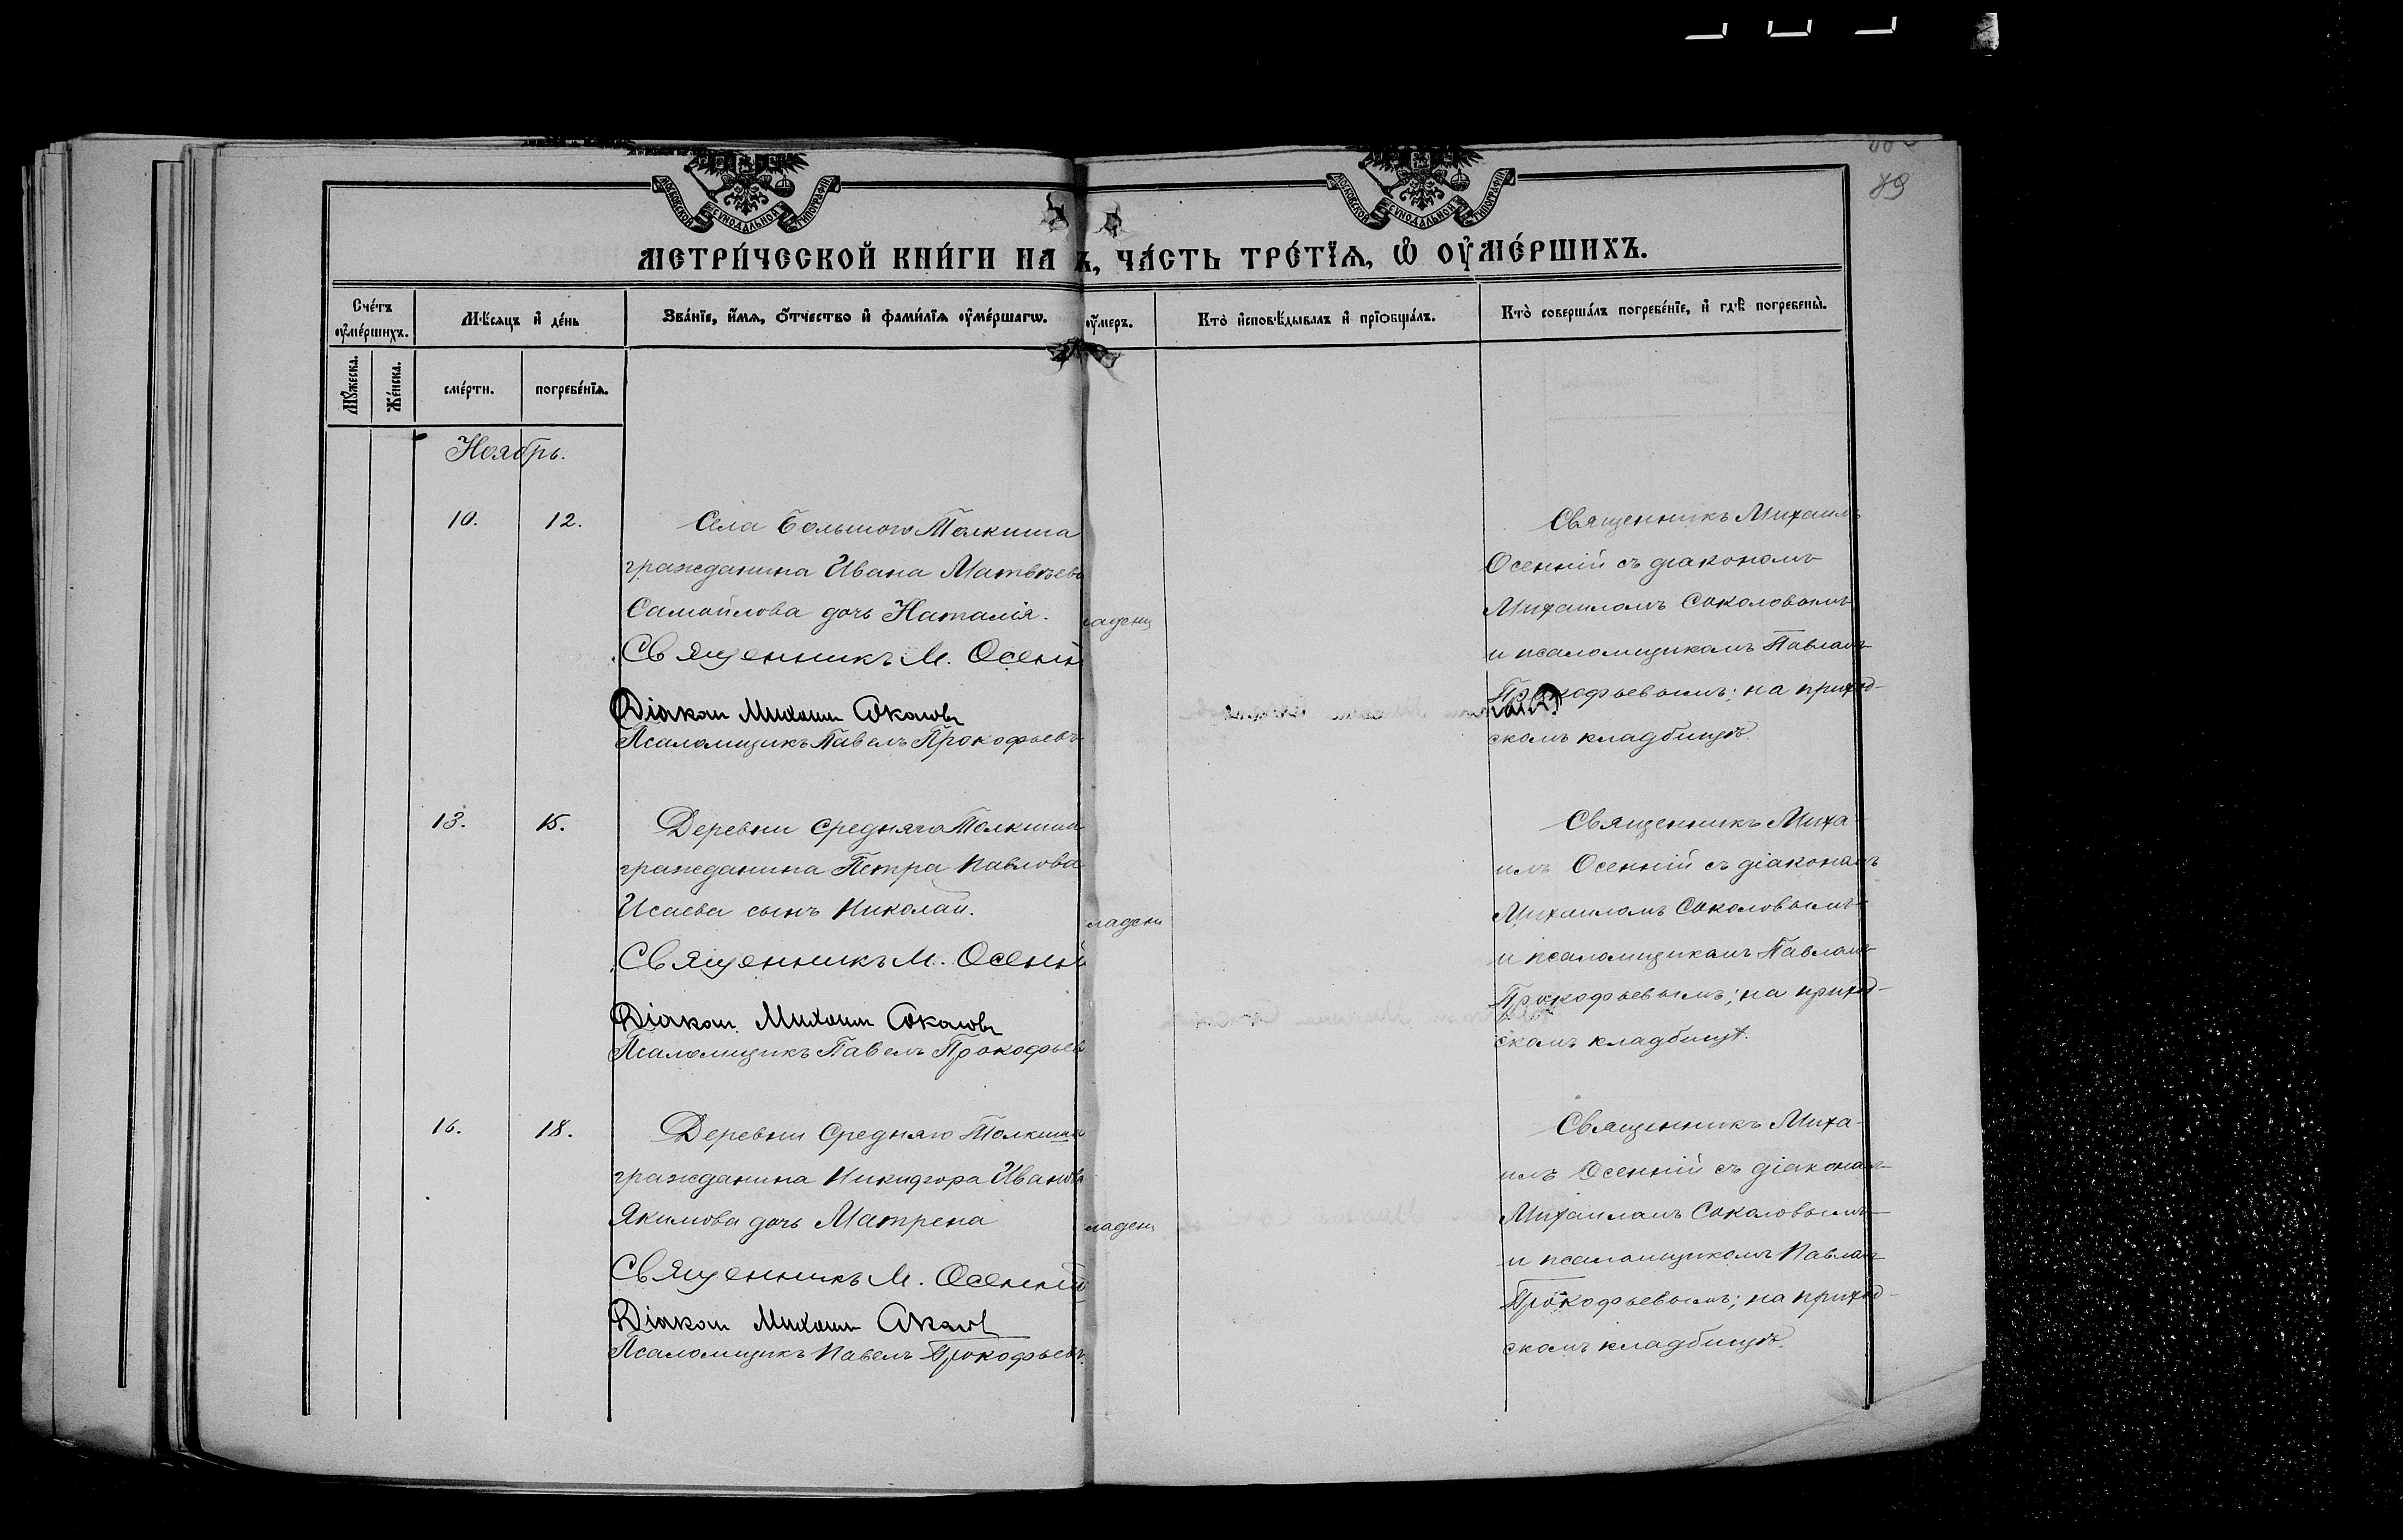 89
МОСКОВСКОЙ СѴНОДАЛЬНОЙ ТИПОГРАФІИ
МОСКОВСКОЙ СѴНОДАЛЬНОЙ ТИПОГРАФІИ
МЕТРИ́ЧЕСКОЙ КНИ́ГИ НА
Ъ, ЧА́СТЬ ТРЕ́ТЇѦ, Ѡ҆ ОУ҆МЕ́РШИХЪ.
Сче́тъ оу҆ме́ршихъ.
Мѣ́сяцъ и҆ де́нь
Зва́нїе, и҆́мѧ, ѻ҆́тчество и҆ фами́лїѧ оу҆ме́ршагѡ.
оу҆́меръ.
Кто̀ и҆сповѣ́дывалъ и҆ прїѡбща́лъ.
Кто̀ соверша́лъ погребе́нїе, и҆ гдѣ̀ погребены̀.
Мꙋ́жеска.
Же́нска.
сме́рти.
погребе́нїѧ.
Ноябрь.
10.
12.
Села Большого Толкиша
гражданина Ивана Матвѣева
Самойлова дочь Наталія.
Священникъ М. Осенні
Діакон Михаил Соколовъ
Псаломщикъ Павелъ Прокофьевъ
ладенц
Священникъ Михаилъ
Осенній съ діакономъ
Михаиломъ Соколовымъ
и псаломщикомъ Павломъ
Прокофьевымъ; на приход-
скомъ кладбищѣ.
13.
15.
Деревни Средняго Толкиша
гражданина Петра Павлова
Исаева сынъ Николай.
Священникъ М. Осенній
Діакон Михаил Соколовъ
Псаломщикъ Павелъ Прокофьев
ладенц
Священникъ Миха-
илъ Осенній съ діакономъ
Михаиломъ Соколовымъ
и псаломщикомъ Павломъ
Прокофьевымъ; на приход-
скомъ кладбищѣ.
16.
18.
Деревни Средняго Толкиша
гражданина Никифора Иванова
Якимова дочь Матрена
Священникъ М. Осенній
Діакон Михаил Соколов
Псаломщикъ Павелъ Прокофьевъ.
ладенц
Священникъ Миха-
илъ Осенній съ діаконом-
Михаиломъ Соколовымъ
и псаломщикомъ Павлом-
Прокофьевымъ; на приход-
скомъ кладбищѣ.